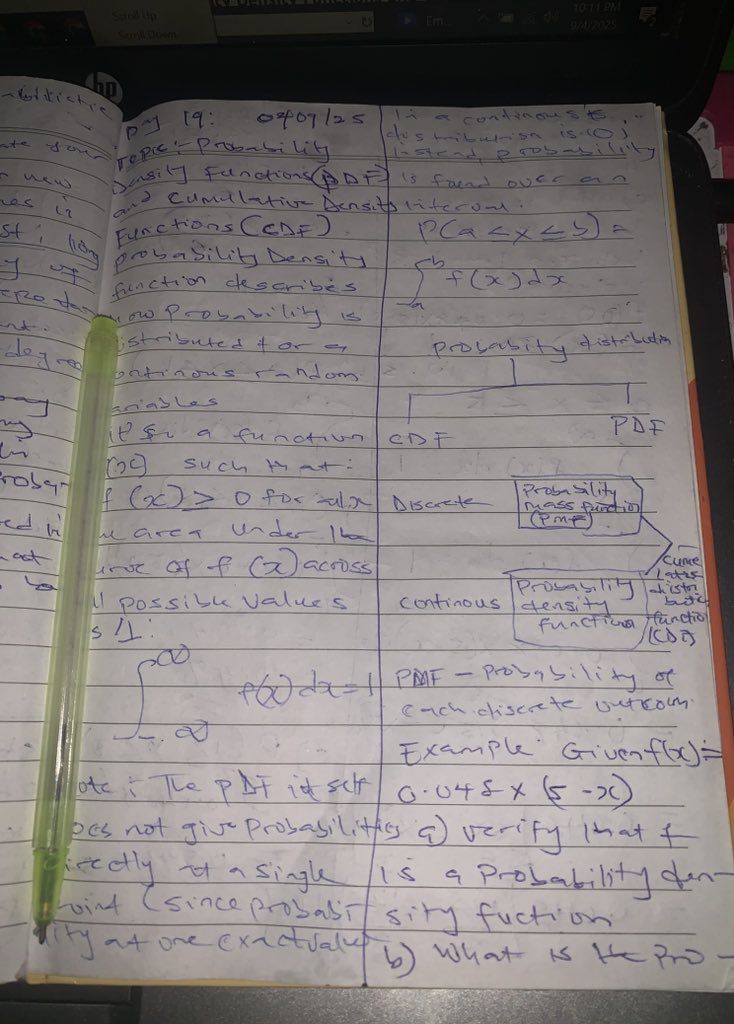 Scroll Up
Scroll Down
Em...
10:11 PM
9/4/2025
hp
ate your
new
degree
Day 19: 04/09/25
Topic:- Probability
Density Functions (PDF)
and Cumulative Density
Functions (CDF).
Probability Density
function describes
how Probability is
istributed for a
ontinous random
ariables
it is a function
(x) such that:
f (x) ≥ 0 for all x
area under the
urve of f (x) across
ll possible values
is 1:
∫ ∞ -∞ f(x) dx = 1
ote: The PDF itself
oes not give Probabilities
irectly at a single
oint (since probabi
lity at one exact value
in a continous
distribution is (0)
instead, probability
is found over an
interval.
P(a ≤ x ≤ b) =
∫ b a f(x) dx
Probabity distribution
CDF PDF
Discrete Probability
mass function
(PMF)
Cumu
lative
distri
bution
function
(CDF)
continous Probability
density
functions
PMF - Probability of
each discrete outcom
Example: Given f(x) =
0.048x (5 - x)
a) verify that f
is a Probability den-
sity fuction
b) What is the Pro-